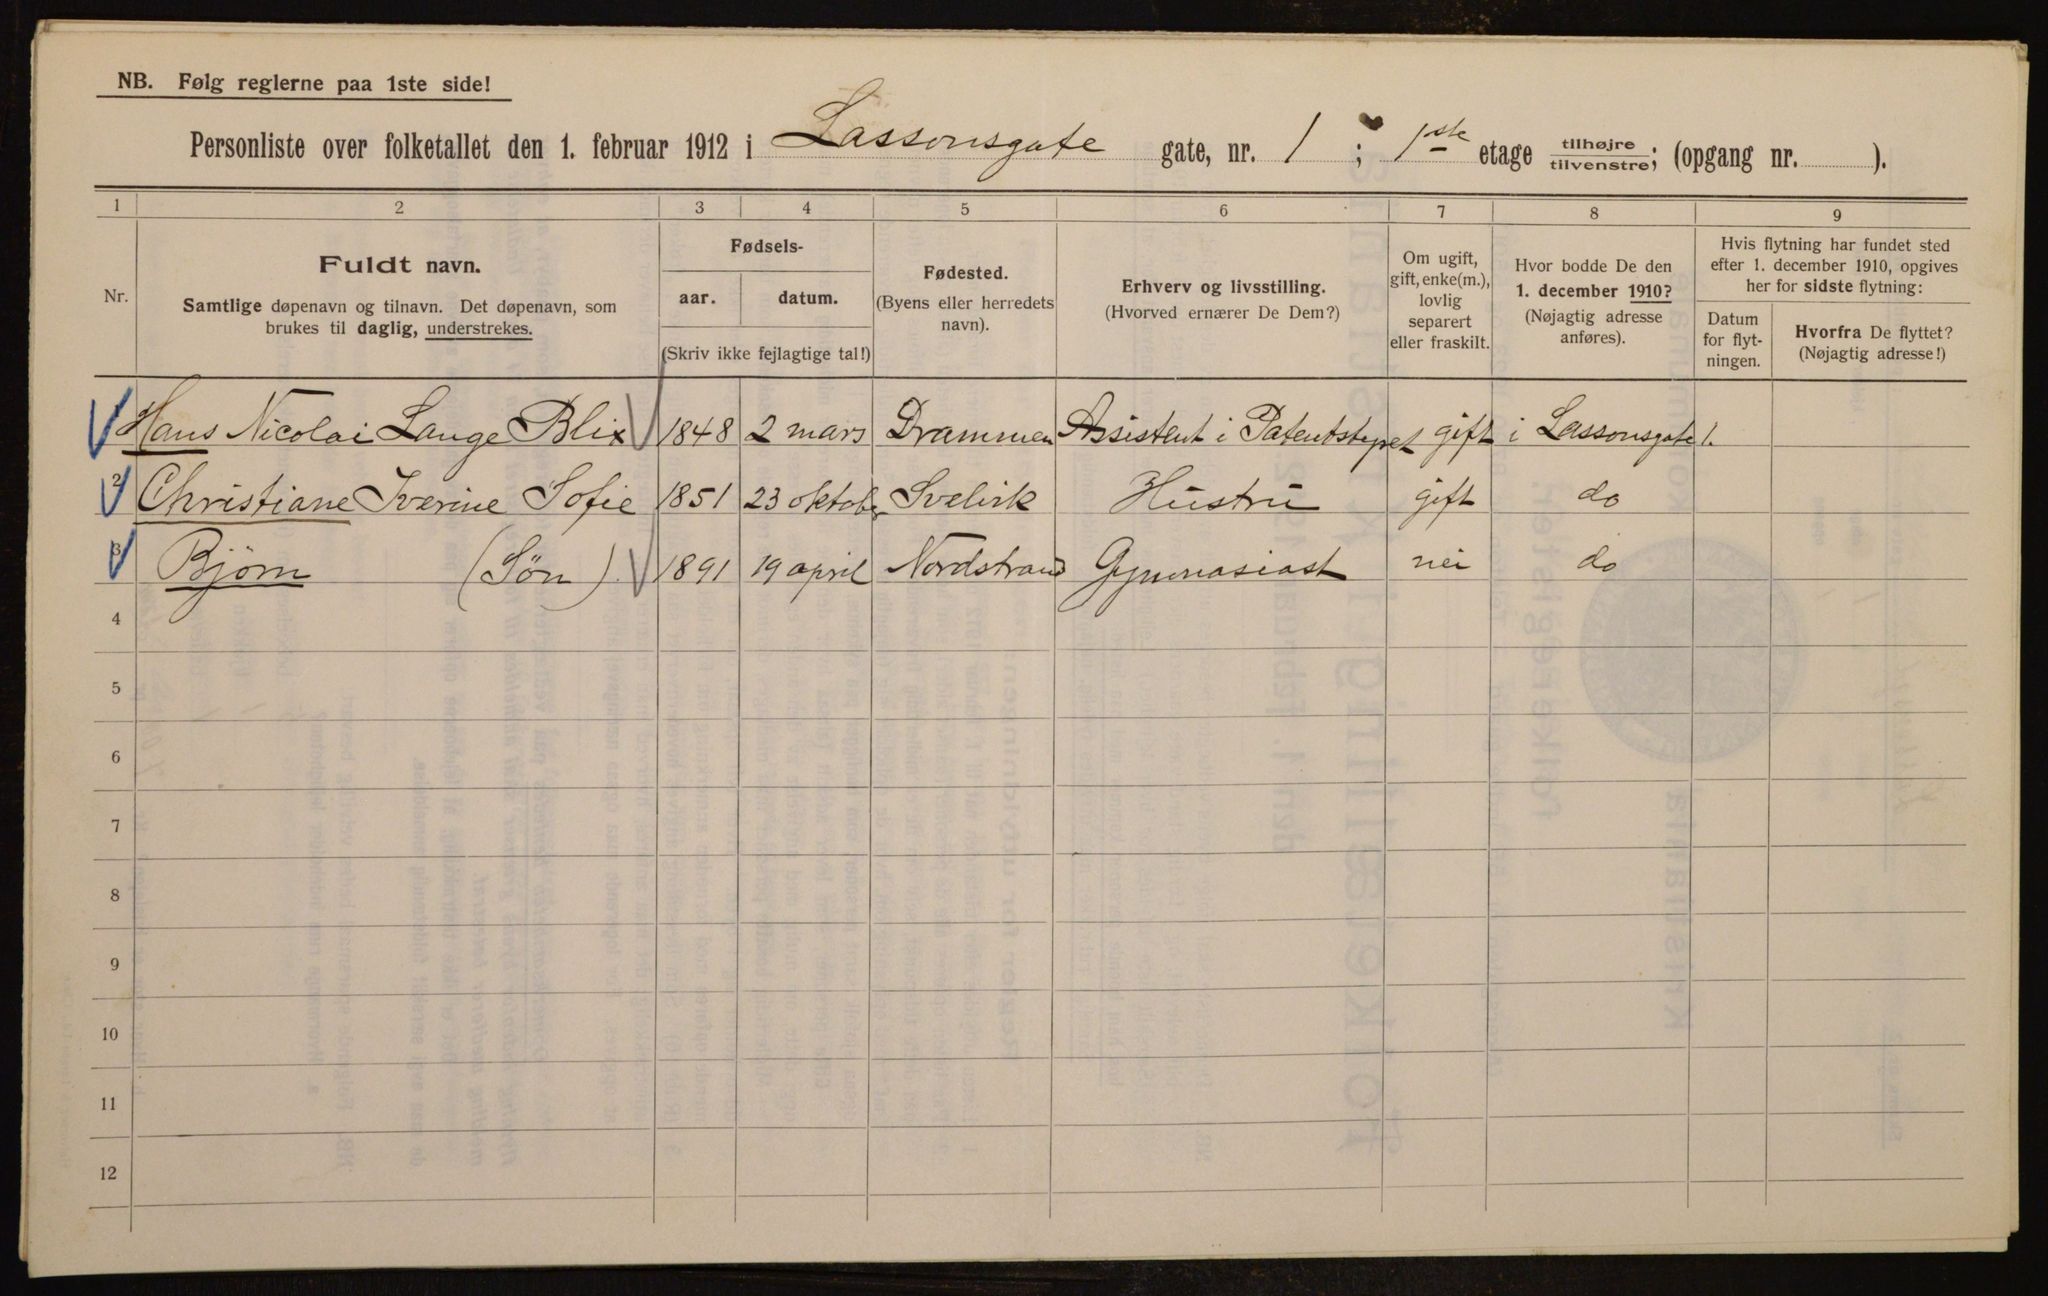 NB. Følg reglerne paa 1ste side!
Personliste over folketallet den 1. februar 1912 i Lassonsgate gate, nr. 1 ; 1ste etage tilhøjre/tilvenstre; (opgang nr. ).
1 2 3 4 5 6 7 8 9
Nr.
Fuldt navn.
Samtlige døpenavn og tilnavn. Det døpenavn, som
brukes til daglig, understrekes.
Fødsels-
aar. datum.
(Skriv ikke fejlagtige tal!)
Fødested.
(Byens eller herredets
navn).
Erhverv og livsstilling.
(Hvorved ernærer De Dem?)
Om ugift,
gift, enke(m.),
lovlig
separert
eller fraskilt.
Hvor bodde De den
1. december 1910?
(Nøjagtig adresse
anføres).
Hvis flytning har fundet sted
efter 1. december 1910, opgives
her for sidste flytning:
Datum
for flyt-
ningen.
Hvorfra De flyttet?
(Nøjagtig adresse!)
Hans Nicolai Lange Blix 1848 2 mars Drammen Assistent i Patentstyret gift i Lassonsgate 1.
2 Christiane Iverine Sofie 1851 23 oktober Svelvik Hustru gift do
3 Bjørn (Søn) 1891 19 april Nordstrand Gymnasiast nei do
4
5
6
7
8
9
10
11
12